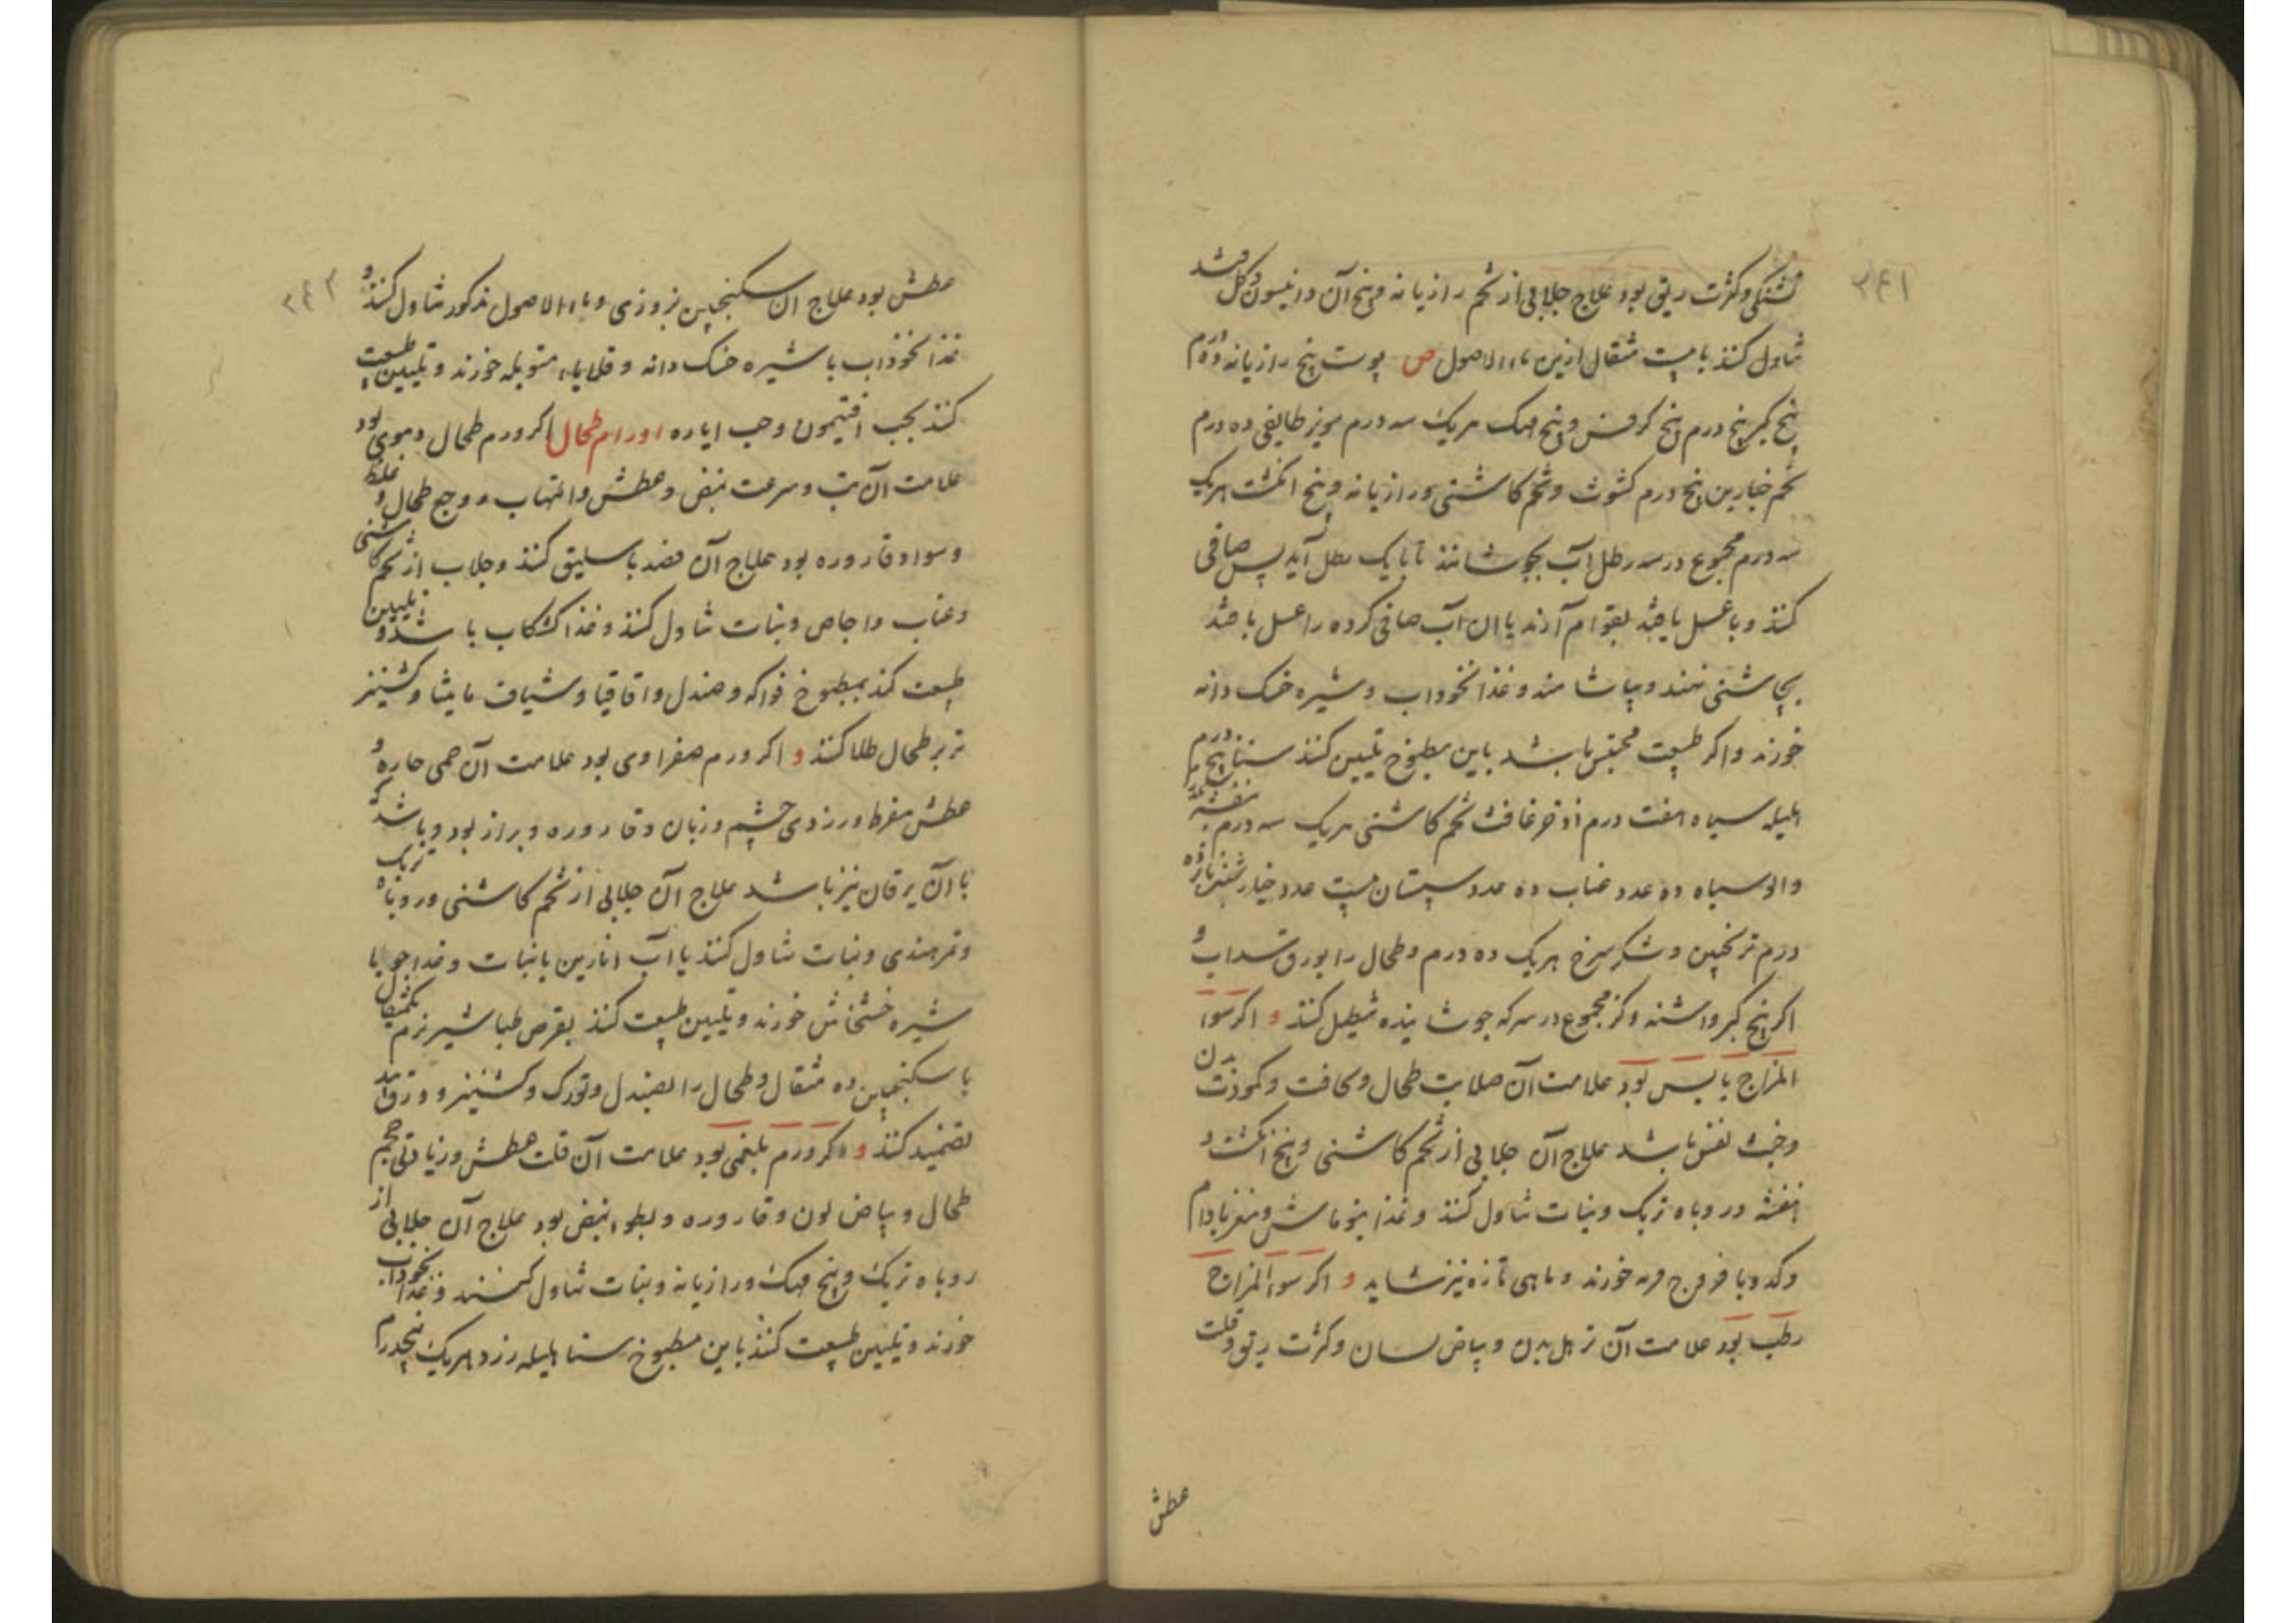 ۲۴۱
تشنگی و کثرت ریق بود علاج جلابی از تخم رازیانه و بیخ آن و انیسون و گل قند
تناول کنند با بیست مثقال ازین ماء الاصول ص پوست بیخ رازیانه ده درم
بیخ کبر پنج درم بیخ کرفس و بیخ مهک هریک سه درم مویز طایفی ده درم
تخم خیارین پنج درم کشوث و تخم کاشنی و رازیانه و پنج انکشت هریک
سه درم مجموع در سه رطل آب بجوشانند تا بایک رطل آید پس صافی
کنند و با عسل یا قند بقوام آرند یا ان آب صافی کرده را عسل یا قند
بچاشنی نهند و بیاشامند و غذا نخوداب و شیره خسک دانه
خورند و اکر طبیعت محتبس باشد باین مطبوخ تلیین کنند سنا پنج درم
هلیله سیاه هفت درم اذخر غافث تخم کاشنی هریک سه درم بنفشه
و الو سیاه ده عدد عناب ده عدد سپستان بیست عدد خیار شنبر پانزده
درم ترنجبین و شکر سرخ هریک ده درم و طحال را بورق سداب و
اکر بیخ کبر و اشنه و کز مجموع در سرکه جوشانیده تنطیل کنند و اکر سوا
المزاج یابس بود علامت آن صلابت طحال و نحافت و کمودت بدن
و خبث نفس باشد علاج آن جلابی از تخم کاشنی و پنج انکشت و
بنفشه و روباه تربک و نبات تناول کنند و غذا بنوماش و مغز بادام
و کدو با فروج فربه خورند و ماهی تازه نیز شاید و اکر سوا المزاج
رطب بود علامت آن ترهل بدن و بیاض لسان و کثرت ریق و قلت
عطش
۲۴۲
عطش بود علاج آن سکنجبین بزوری و ماء الاصول مذکور تناول کنند و
غذا نخوداب با شیره خسک دانه و قلایاء متوبله خورند و تلیین طبیعت
کنند بحب افتیمون و حب ایاره اورام طحال اکر ورم طحال دموی بود
علامت آن تب و سرعت نبض و عطش و التهاب و وجع طحال و غلظ
و سواد قاروره بود علاج آن فصد باسلیق کنند و جلاب از تخم کاشنی
و عناب و اجاص و نبات تناول کنند و غذا کشکاب باشد و تلیین
طبیعت کنند بمطبوخ فواکه و صندل و اقاقیا و شیاف مامیثا و کشنیز
تر بر طحال طلا کنند و اکر ورم صفراوی بود علامت آن حمی حاره و
عطش مفرط و زردی چشم و زبان و قاروره و براز بود و باشد که
با آن یرقان نیز باشد علاج آن جلابی از تخم کاشنی و روباه تربک
و تمر هندی و نبات تناول کنند یا آب انارین با نبات و غذا جو با
شیره خشخاش خورند و تلیین طبیعت کنند بقرص طباشیر نرم یکمثقال
با سکنجبین ده مثقال و طحال را بصندل و تورک و کشنیز و ورق بید
تضمید کنند و اکر ورم بلغمی بود علامت آن قلت عطش و زیادتی حجم
طحال و بیاض لون و قاروره و بطوء نبض بود علاج آن جلابی از
روباه تربک و بیخ مهک و رازیانه و نبات تناول کنند و غذا نخوداب
خورند و تلیین طبیعت کنند باین مطبوخ سنا هلیله زرد هریک پنجدرم